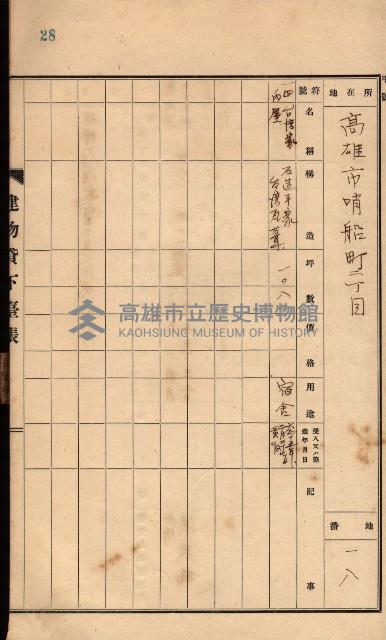 28
所在地
高雄市哨船町二丁目
地番
一八
符號
名稱
構造
坪數
價格
用途
受入又ハ築造年月日
記事
石造平家
台湾瓦葺
一〇、八
宿舍
建物貸下臺帳
高雄市立歷史博物館
KAOHSIUNG MUSEUM OF HISTORY